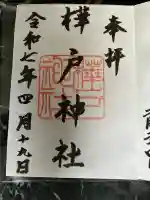 奉拝
樺戸神社
令和七年四月十九日